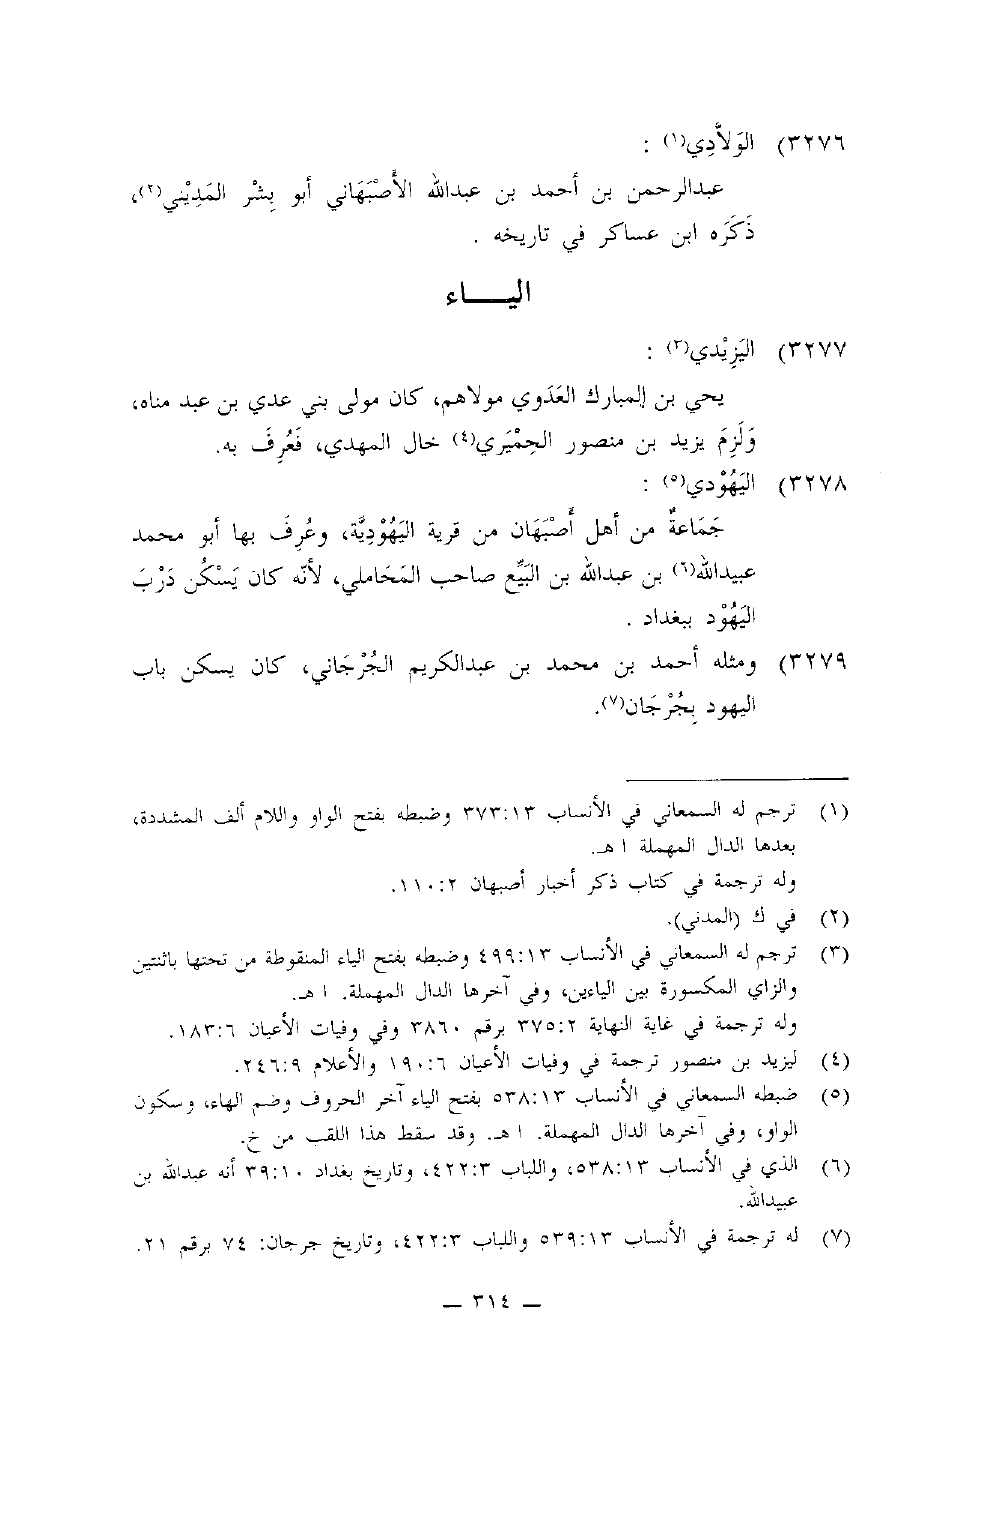 ٣٢٧٦) الوَلاَّدِي(١) :
عبدالرحمن بن أحمد بن عبدالله الأَصْبَهَاني أبو بِشْر المَدِيْني(٢)،
ذَكَرَه ابن عساكر في تاريخه .
اليـــاء
٣٢٧٧) اليَزِيْدي(٣) :
يحي بن المبارك العَدَوي مولاهم، كان مولى بني عدي بن عبد مناه،
وَلَزِمَ يزيد بن منصور الحِمْيَري(٤) خال المهدي، فَعُرِفَ به.
٣٢٧٨) اليَهُوْدي(٥) :
جَمَاعةٌ من أهل أَصْبَهَان من قرية اليَهُوْدِيَّة، وعُرِفَ بها أبو محمد
عبيدالله(٦) بن عبدالله بن البَيِّع صاحب المَحَاملي، لأنّه كان يَسْكُن دَرْبَ
اليَهُوْد ببغداد .
٣٢٧٩) ومثله أحمد بن محمد بن عبدالكريم الجُرْجَاني، كان يسكن باب
اليهود بِجُرْجَان(٧).
(١) ترجم له السمعاني في الأنساب ٣٧٣:١٣ وضبطه بفتح الواو واللام ألف المشددة،
بعدها الدال المهملة ا هـ.
وله ترجمة في كتاب ذكر أخبار أصبهان ١١٠:٢.
(٢) في ك (المدني).
(٣) ترجم له السمعاني في الأنساب ٤٩٩:١٣ وضبطه بفتح الياء المنقوطة من تحتها باثنتين
والزاي المكسورة بين الياءين، وفي آخرها الدال المهملة. ا هـ.
وله ترجمة في غاية النهاية ٣٧٥:٢ برقم ٣٨٦٠ وفي وفيات الأعيان ١٨٣:٦.
(٤) ليزيد بن منصور ترجمة في وفيات الأعيان ١٩٠:٦ والأعلام ٢٤٦:٩.
(٥) ضبطه السمعاني في الأنساب ٥٣٨:١٣ بفتح الياء آخر الحروف وضم الهاء، وسكون
الواو، وفي آخرها الدال المهملة. ا هـ. وقد سقط هذا اللقب من خ.
(٦) الذي في الأنساب ٥٣٨:١٣، واللباب ٤٢٢:٣، وتاريخ بغداد ٣٩:١٠ أنه عبدالله بن
عبيدالله.
(٧) له ترجمة في الأنساب ٥٣٩:١٣ واللباب ٤٢٢:٣، وتاريخ جرجان: ٧٤ برقم ٢١.
— ٣١٤ —